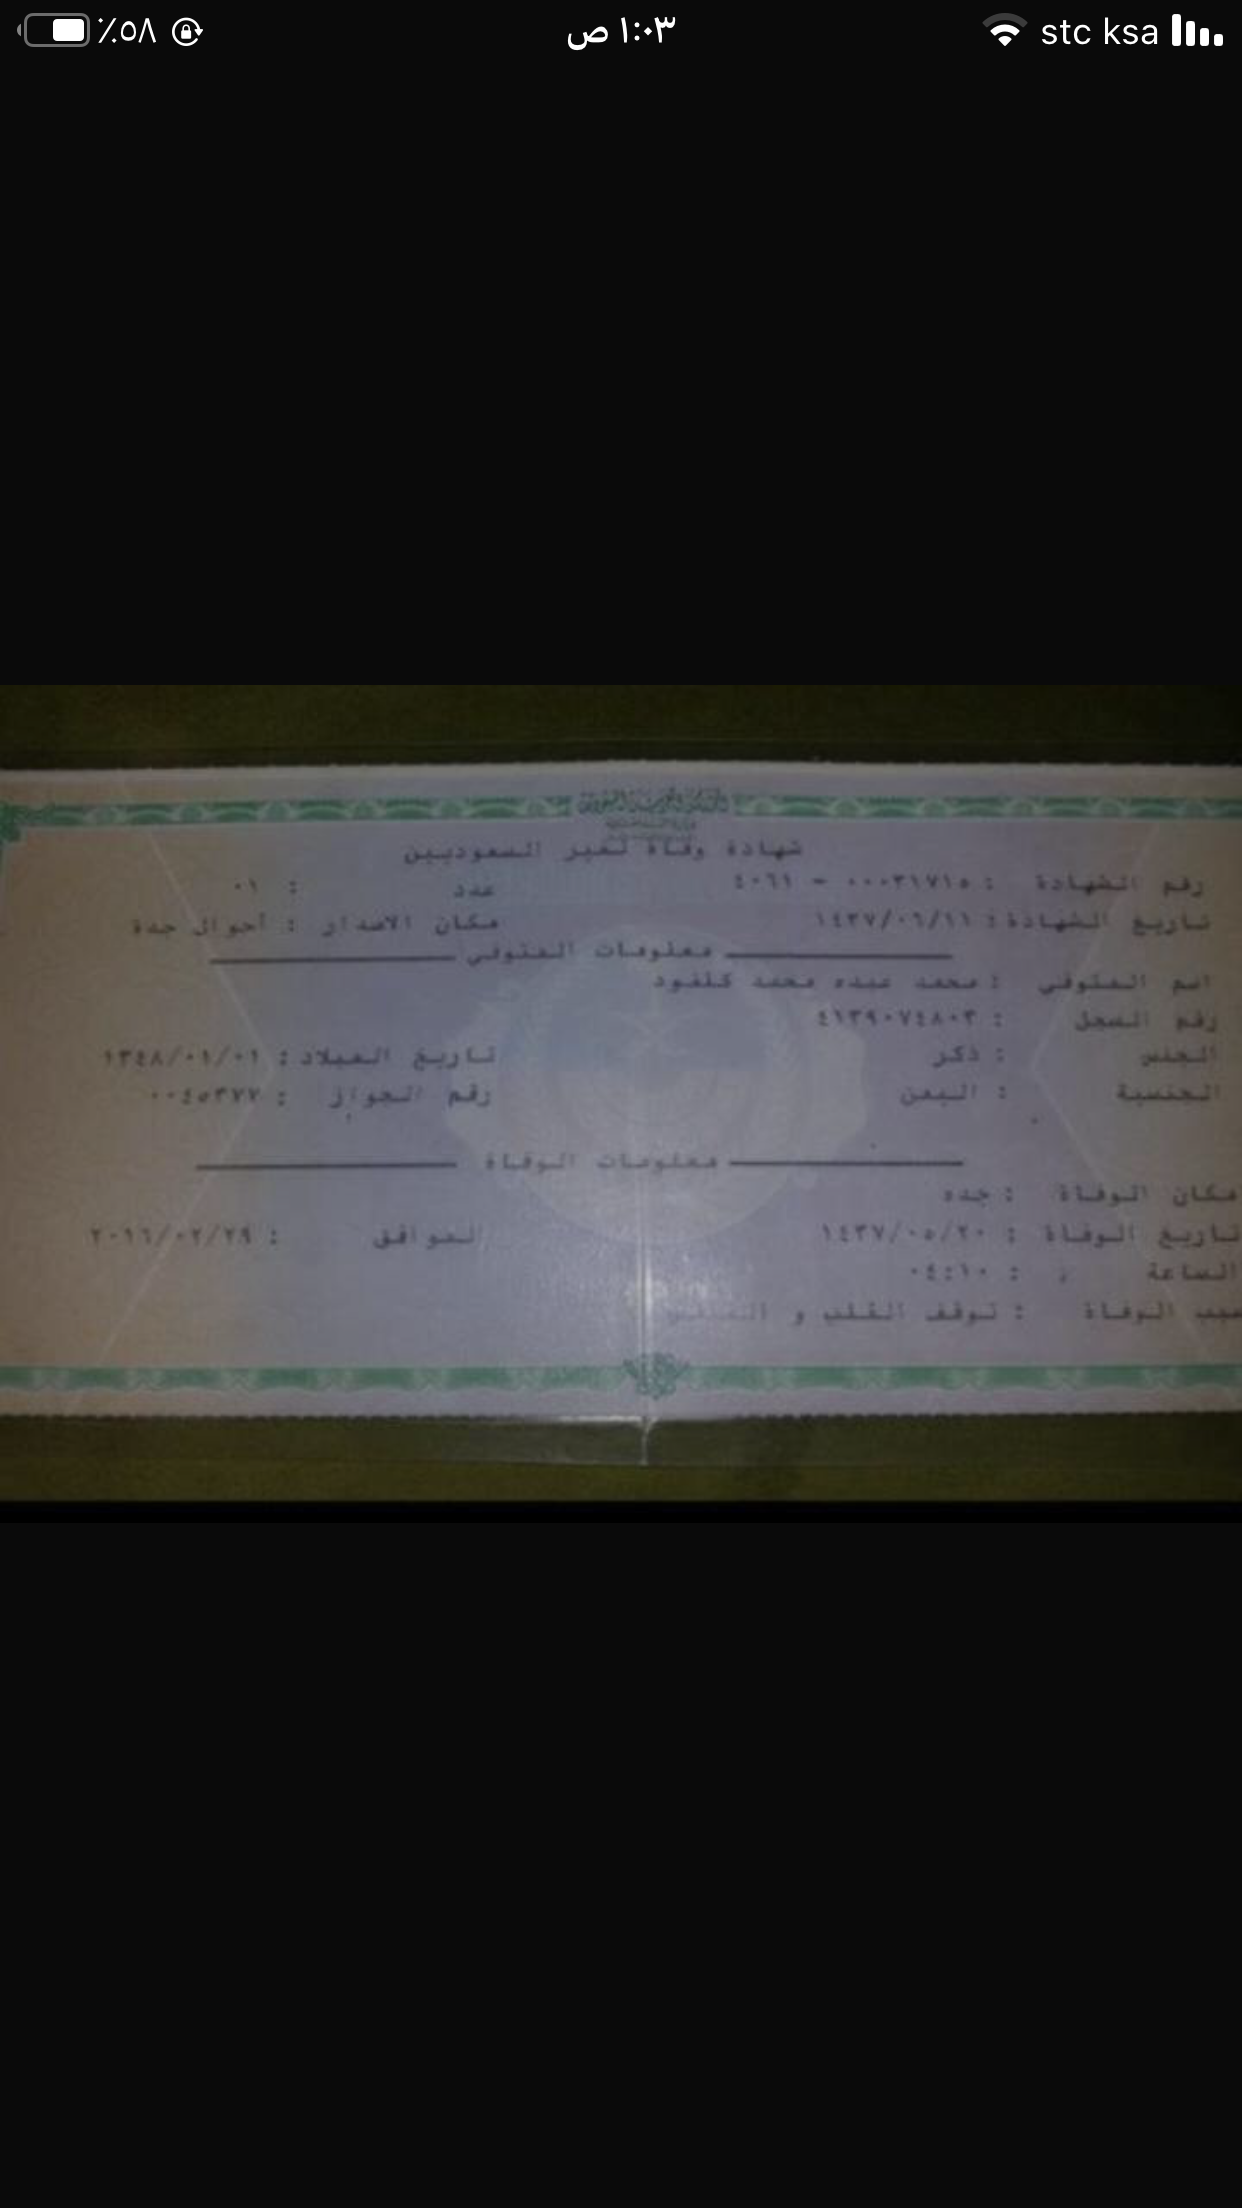 ٪٥٨ ١:٠٣ ص stc ksa
شهادة وفاة لغير السعوديين
رقم الشهادة : ٠٠٠٣١٧١٥ - ٤٠٦١ عدد : ٠١
تاريخ الشهادة : ١٤٣٧/٠٦/١١ مكان الاصدار : أحوال جدة
معلومات المتوفي
اسم المتوفي : محمد عبده محمد كلفود
رقم السجل : ٤١٣٩٠٧٤٨٠٣
الجنس : ذكر تاريخ الميلاد : ١٣٤٨/٠١/٠١
الجنسية : اليمن رقم الجواز : ٠٠٤٥٣٧٧
معلومات الوفاة
مكان الوفاة : جده
تاريخ الوفاة : ١٤٣٧/٠٥/٢٠ الموافق : ٢٠١٦/٠٢/٢٩
الساعة : ٠٤:١٠
سبب الوفاة : توقف القلب و